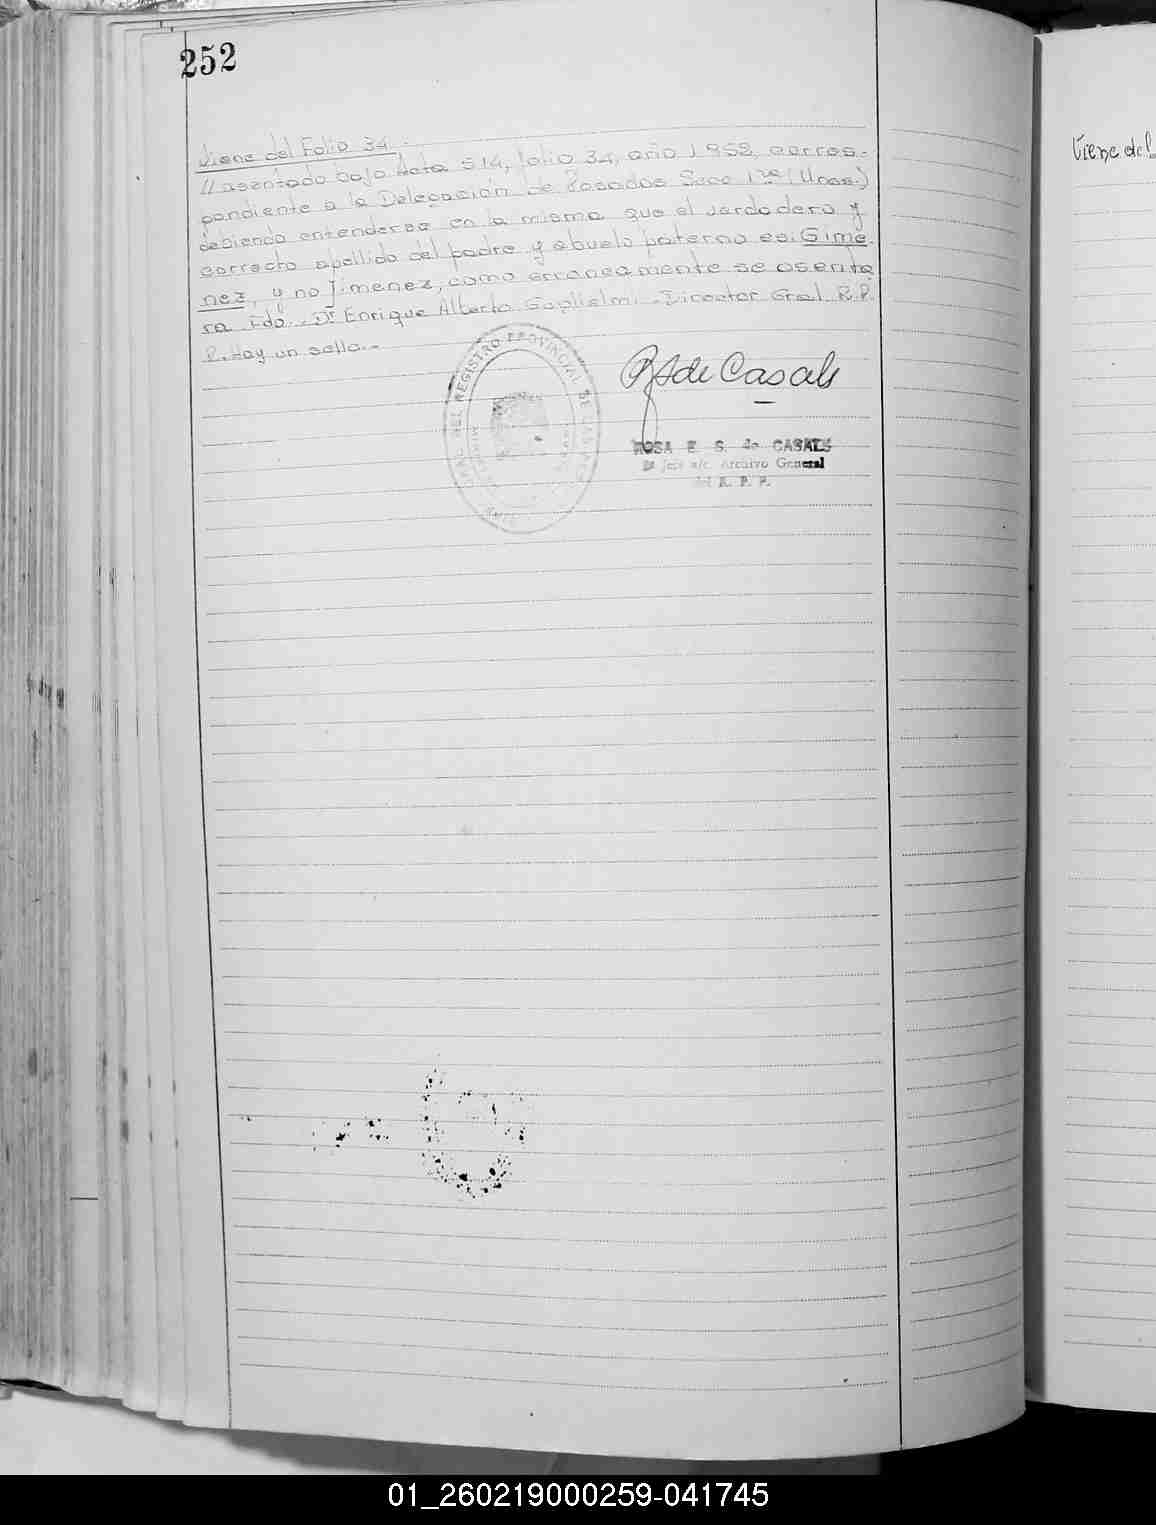 252
Viene del Folio 34.-
// asentado bajo Acta 514, folio 34, año 1958, corres-
pondiente a la Delegación de Posadas Secc 1ra (Unos.)
debiendo entenderse en la misma que el verdadero y
correcto apellido del padre y abuelo paterno es: Gime-
nez, y no Jimenez, como erroneamente se asenta
ra Fdo.- Dr Enrique Alberto Guglielmi.- Director Gral R.P.
P. Hay un sello.-
DEL REGISTRO PROVINCIAL DE LAS
R S de Casals
ROSA E. S. de CASALS
Jefe a/c. Archivo General
del R. P. P.
Viene del
01_260219000259-041745